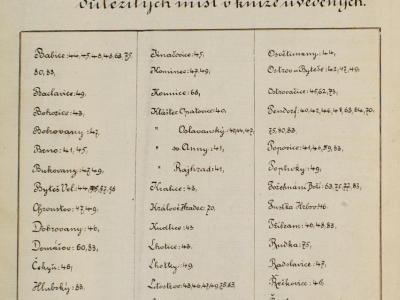 důležitých míst v knize uvedených.
Babice: 44, 45, 48, 63, 75.
80, 83,
Baclavice: 49,
Bohořice: 43,
Bohrovany: 47,
Brno: 41, 45,
Bukovany: 47, 49,
Byteš Vel: 44,
Chronstov: 47, 49,
Dobrovany: 46,
Domášov: 60, 83,
Čekyň: 46,
Hlubočky: 83,
Jinačovice: 45,
Komínec: 47, 49,
Kounice: 68,
Klášter Opatovice: 40,
" Oslavanský:
" sv. Anny: 41,
" Rajhrad: 41,
Kratice: 43,
Králové Hradec: 70,
Kudlice: 43
Lhotice: 43,
Lhotky: 49,
Litostrov: 43, 46, 47, 49,
Osvětimany: 44,
Ostrov u Byteše: 42, 47, 49,
Ostrovačice: 45, 62, 73,
Pendorf: 40, 42, 46, 48, 63, 64, 70,
75, 80, 83.
Popovice: 41, 46, 59, 83,
Poplůvky: 49,
Požehnání Boží: 63, 75, 77, 83,
Pustka Hrbov 46.
Příbram: 46, 48, 83,
Rudka: 75,
Radslavice: 47,
Řečkovice: 46,